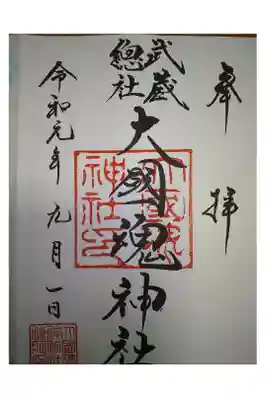 奉拝
武蔵
總社
大國魂神社
令和元年九月一日